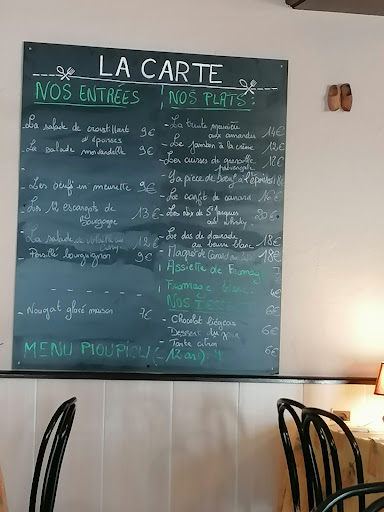 LA CARTE
NOS ENTRÉES
- La salade de croustillant d'époisses 9€
- La salade morvandelle 9€
-
- Les oeufs en meurette 9€
- Les 12 escargots de Bourgogne 13€
- La salade de 12€
- Persillé bourguignon 9€
- Nougat glacé maison 7€
NOS PLATS:
- La truite meunière aux amandes 14€
- Le jambon à la crème 12€
- Les cuisses de grenouille provençale 18€
- La pièce de boeuf à l'époisses 18€
- Le confit de canard 16€
- Les noix de St Jacques au whisky 20€
- Le dos de daurade au beurre blanc 18€
- Magret de Canard au 18€
Assiette de Fromage 7
Fromage blanc
NOS DESSERTS
- Chocolat liégeois 6€
- Dessert du jour 6€
- Tarte citron 6€
MENU PIOUPIOU (-12 ans):